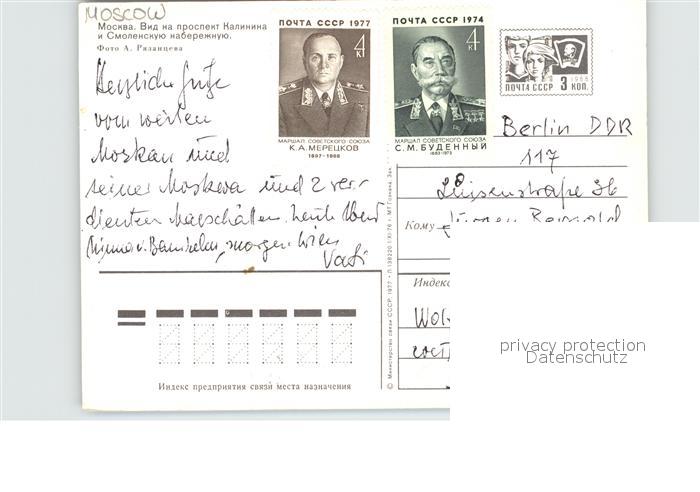 MOSCOW
Москва. Вид на проспект Калинина
и Смоленскую набережную.
Фото А. Рязанцева
Herzliche Grüße
vom weiten
Moskau und
seiner Moskwa und 2 ver-
dienten Marschällen. heute Abend
Minna v. Barnhelm, morgen Wien
Vati
ПОЧТА СССР 1977
4 к
МАРШАЛ СОВЕТСКОГО СОЮЗА
К.А.МЕРЕЦКОВ
1897-1968
ПОЧТА СССР 1974
4 к
МАРШАЛ СОВЕТСКОГО СОЮЗА
С.М.БУДЕННЫЙ
1883-1973
1966
ПОЧТА СССР 3 КОП.
Berlin DDR
117
36
Кому
Индекс
© Министерство связи СССР, 1977
Индекс предприятия связи места назначения
privacy protection
Datenschutz